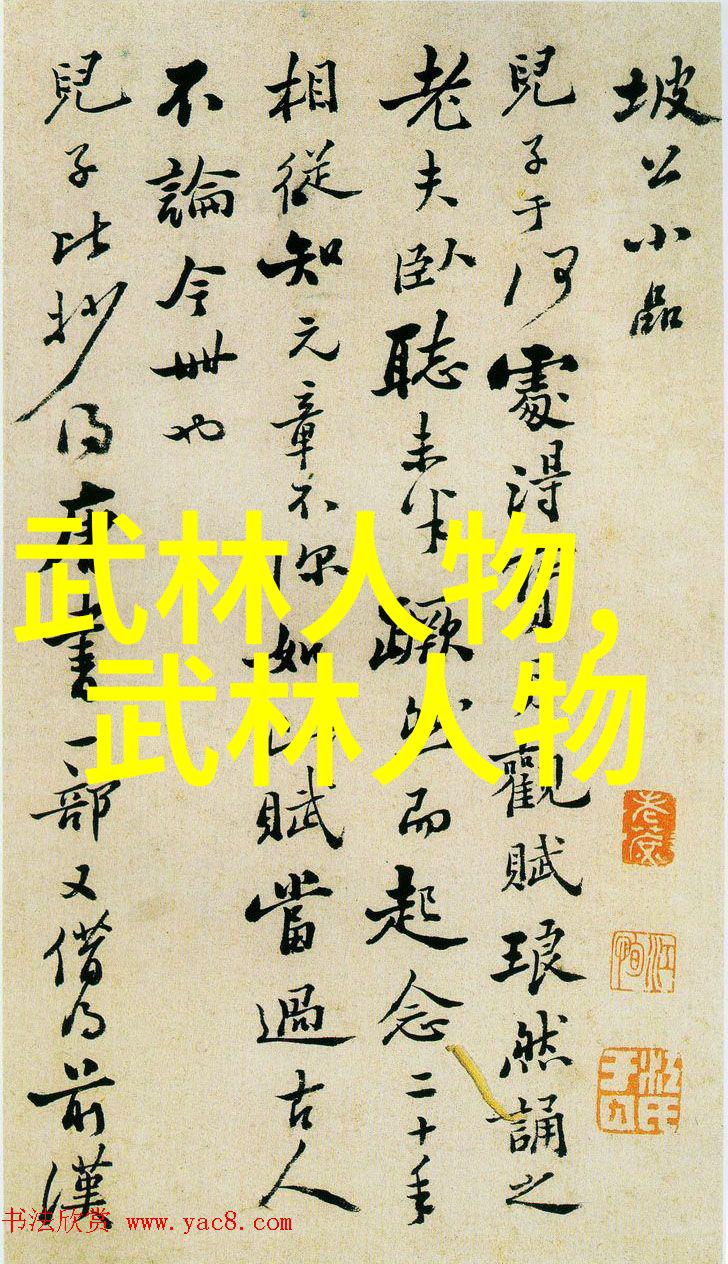 坡公小品
兒子于何處得寶月觀賦琅然誦之
老夫臥聽未半蹶然而起念二十年
相從知元章不深如此賦當過古人
不論今世也
兒子比抄得唐書一部又借得前漢
武林人物,
武林人物
书法欣赏 www.yac8.com